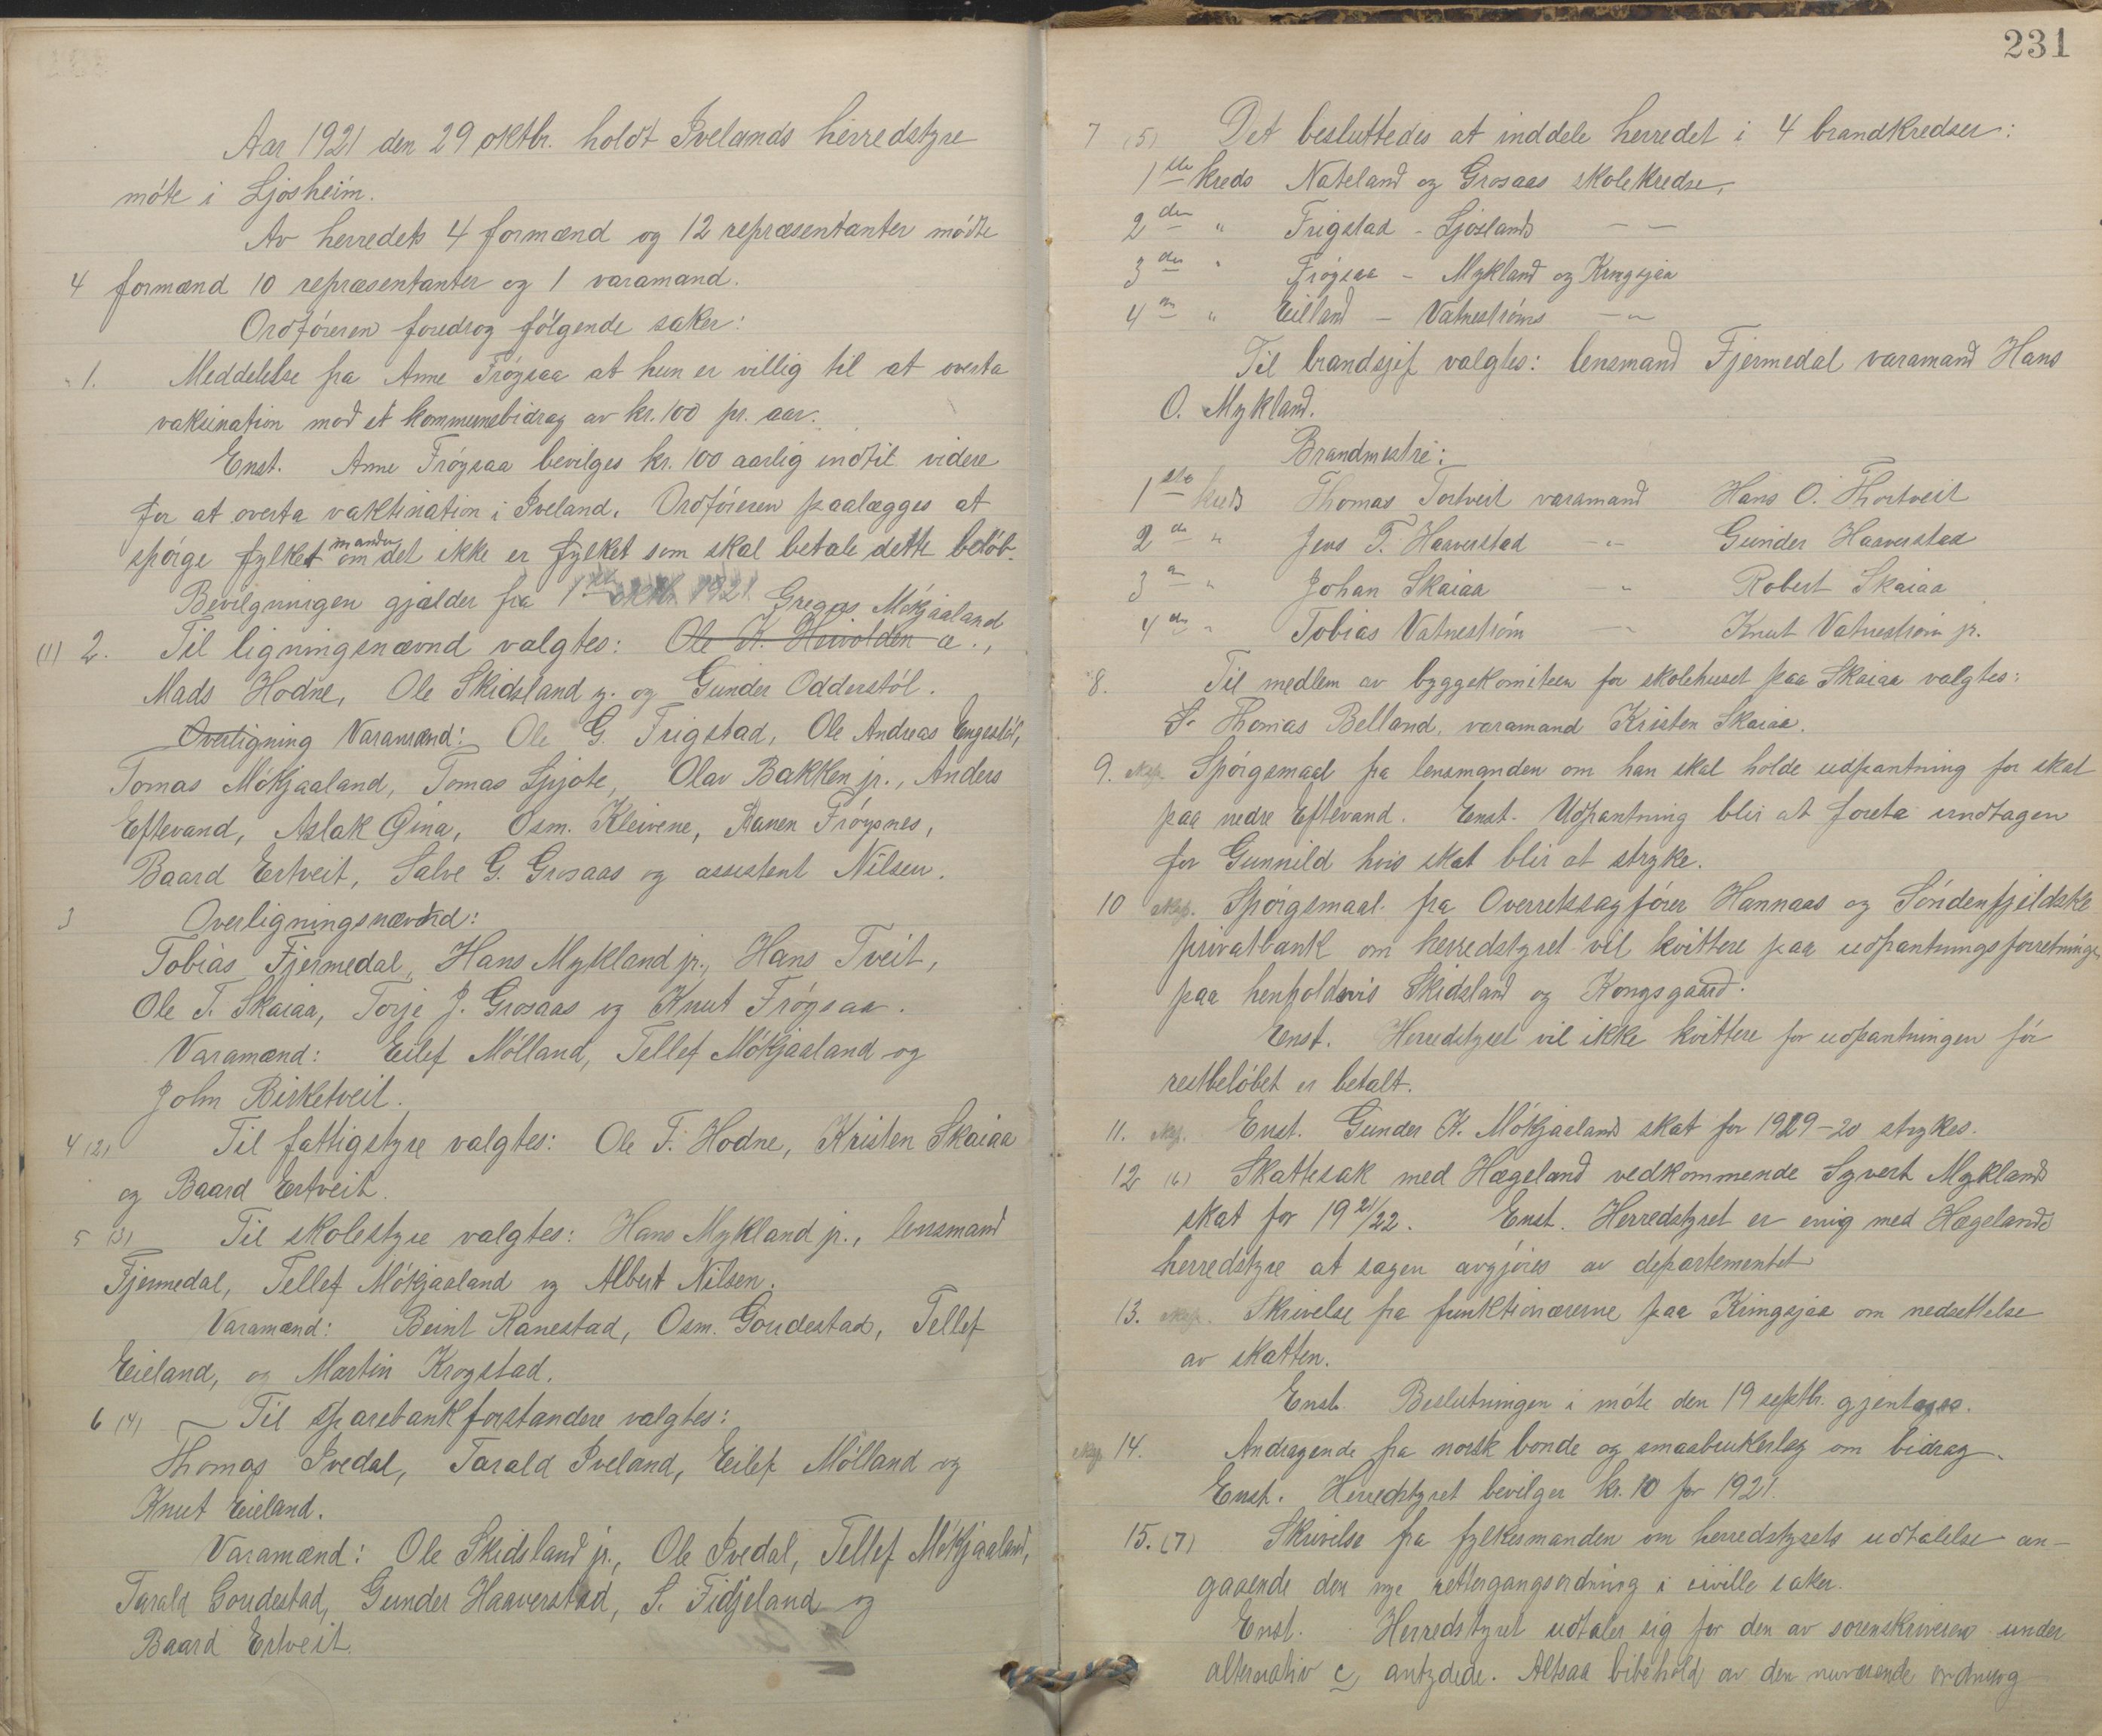 Aar 1921 den 29 oktbr. holdt Ivelands herredstyre
møte i Ljosheim.
Av herredets 4 formænd og 12 repræsentanter mødte
4 formænd 10 repræsentanter og 1 varamand.
Ordføreren foredrog følgende saker:
1. Meddelelse fra Anne Frøysaa at hun er villig til at overta
vaksination mod et kommunebidrag av kr. 100 pr. aar.
Enst. Anne Frøysaa bevilges kr. 100 aarlig indtil videre
for at overta vaktination i Iveland. Ordføreren paalægges at
spørge fylket manden om det ikke er fylket som skal betale dette beløb.
Bevilgningen gjælder fra 1ste oktbr. 1921. Gregas Møkjaaland
(1) 2. Til ligningsnævnd valgtes: Ole K. Heivolden æ.,
Mads Hodne, Ole Skidsland y. og Gunder Odderstøl.
Overligning Varamænd: Ole G. Frigstad, Ole Andreas Engestøl,
Tomas Møkjaaland, Tomas Ljoste, Olav Bakken jr., Anders
Eftevand, Aslak Øina, Osm. Kleivene, Aanen Frøysnes,
Baard Ertveit, Salve G. Grosaas og assistent Nilsen.
3 Overligningsnævnd:
Tobias Fjermedal, Hans Mykland jr., Hans Tveit,
Ole T. Skaiaa, Torje J. Grosaas og Knut Frøysaa.
Varamænd: Eilef Mølland, Tellef Møkjaaland og
John Birketveit.
4 (2) Til fattigstyre valgtes: Ole F. Hodne, Kristen Skaiaa
og Baard Ertveit.
5 (3) Til skolestyre valgtes: Hans Mykland jr., lensmand
Fjermedal, Tellef Møkjaaland og Albert Nilsen.
Varamænd: Beint Ranestad, Osm. Goudestad, Tellef
Eieland, og Martin Krogstad.
6 (4) Til sparebankforstandere valgtes:
Thomas Ivedal, Tarald Iveland, Eilef Mølland og
Knut Eieland.
Varamænd: Ole Skidsland jr., Ole Ivedal, Tellef Møkjaaland,
Tarald Goudestad, Gunder Haaverstad, S. Fidjeland og
Baard Ertveit.
231
7 (5) Det besluttedes at inddele herredet i 4 brandkredser:
1ste kreds Nateland og Grosaas skolekredse,
2den " Frigstad - Ljoslands — —
3die " Frøysaa - Mykland og Kringsjaa
4de " Eilland - Vatnestrøms — "
Til brandsjef valgtes: lensmand Fjermedal varamand Hans
O. Mykland.
Brandmestre:
1ste kreds Thomas Tortveit varamand Hans O. Thortveit
2den " Jens T. Haaverstad - " - Gunder Haaverstad
3die " Johan Skaiaa - " Robert Skaiaa
4de " Tobias Vatnestrøm " Knut Vatnestrøm jr.
8. Til medlem av byggekomiteen for skolehuset paa Skaiaa valgtes:
S. Thomas Belland, varamand Kristen Skaiaa.
9. eksp. Spørgsmaal fra lensmanden om han skal holde udpantning for skat
paa nedre Eftevand. Enst. Udpantning blir at foreta undtagen
for Gunnild hvis skat blir at stryke.
10 eksp. Spørgsmaal fra Overretssagfører Hannaas og Søndenfjeldske
privatbank om herredstyret vil kvittere paa udpantningsforretninger
paa henholdsvis Skidsland og Kongsgaard.
Enst. Herredstyret vil ikke kvittere for udpantningen før
restbeløbet er betalt.
11. eksp. Enst. Gunder K. Møkjaalands skat for 1919-20 strykes.
12 (6) Skattesak med Hægeland vedkommende Syvert Myklands
skat for 1921/22. Enst. Herredstyret er enig med Hægelands
herredstyre at sagen avgjøres av departementet
13. eksp. Skrivelse fra funktionærerne paa Kringsjaa om nedsettelse
av skatten.
Enst. Beslutningen i møte den 19 septbr. gjentages.
eksp. 14. Andragende fra norsk bonde og smaabrukerlag om bidrag.
Enst. Herredstyret bevilger kr. 10 for 1921.
15. (7) Skrivelse fra fylkesmanden om herredstyrets udtalelse an-
gaaende den nye rettergangsordning i sivile saker.
Enst. Herredstyret udtaler sig for den av sorenskriveren under
alternativ c, antydede. Altsaa bibehold av den nuværende ordning